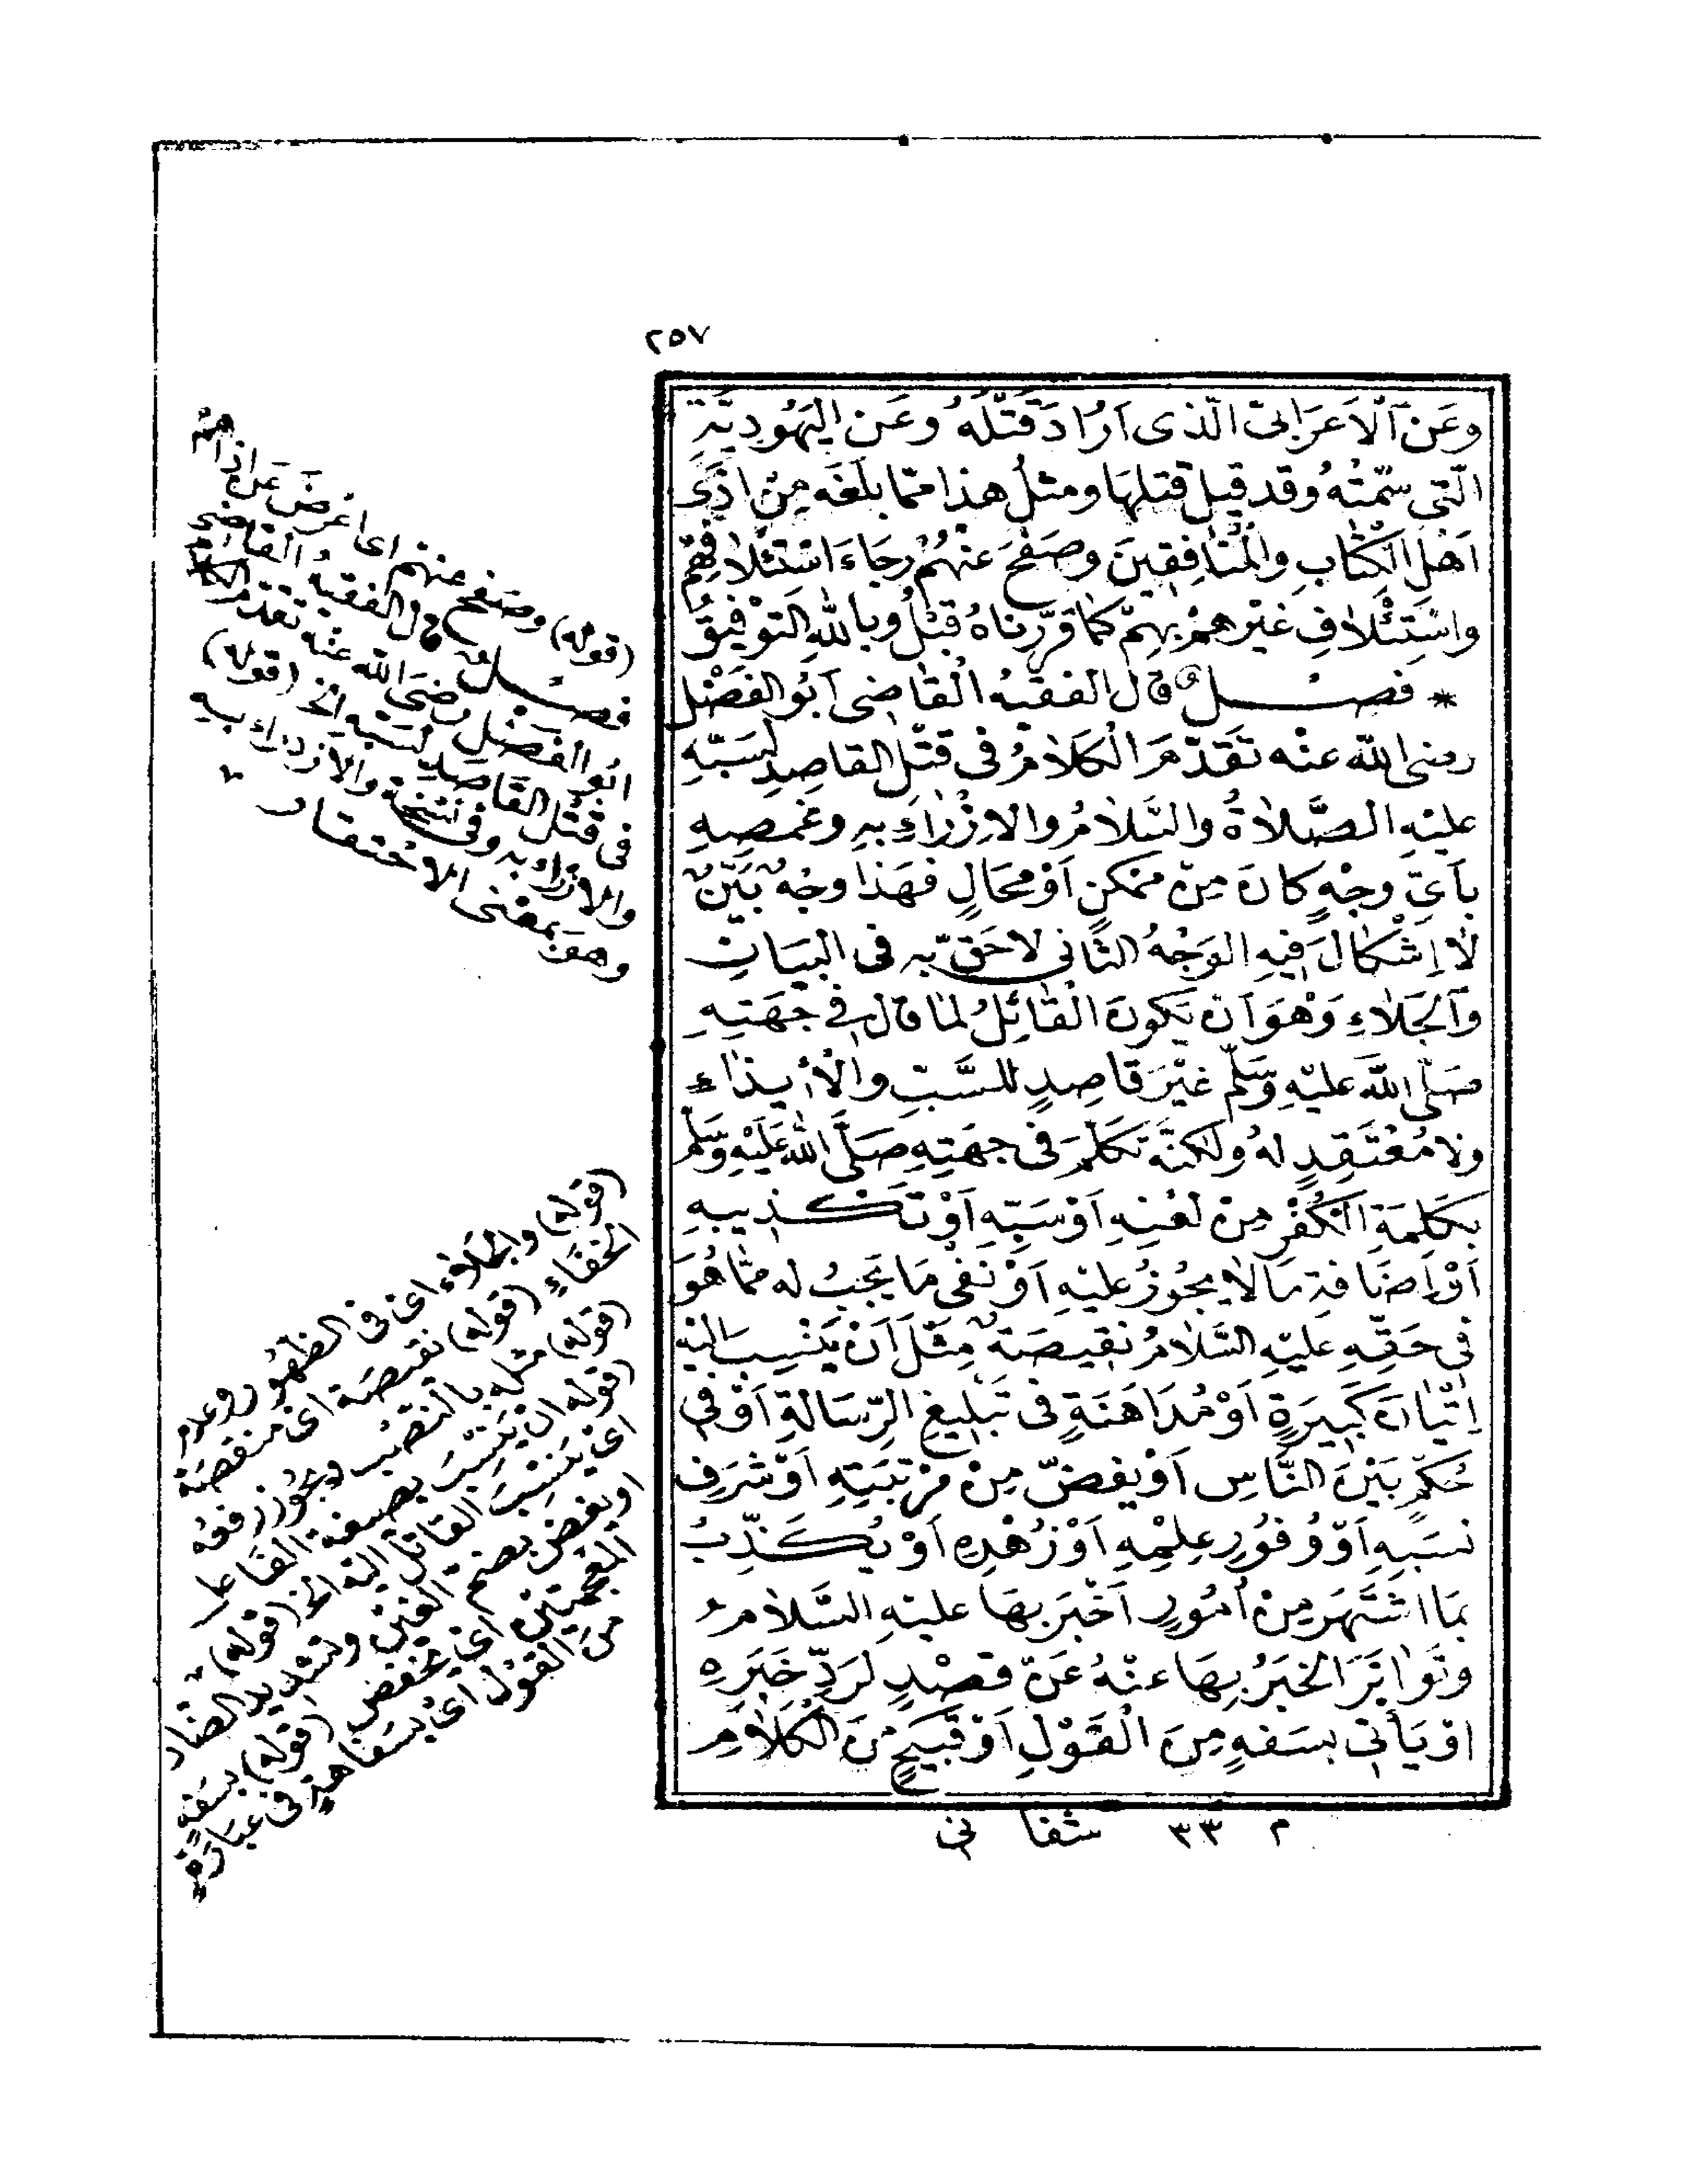 ٢٥٧
وعَنِ الْاَعْرَابِيّ الّذى اَرَادَ قَتْلَهُ وعَنِ اليَهُودِيَّةِ
الّتى سَمَّتْهُ وقد قيل قتلها ومثلُ هذا مما بلغَه مِنْ اَذَى
اَهْلِ الْكِتَابِ والْمُنَافِقِينَ وصَفَحَ عَنْهُمْ رجَاءَ اسْتِئْلَافِهِمْ
واسْتِئْلَافِ غَيْرِهِمْ بِهِمْ كما قرّرناهُ قَبْلُ وبالله التّوْفِيقُ
* فصــل قال الفقيهُ القَاضِى اَبُو الفَضْل
رضى الله عنه تقَدّمَ الْكَلَامُ فى قتْلِ القاصِدِ لِسَبِّهِ
عليْهِ الصَّلَاةُ والسَّلَامُ والاِزْرَاءِ بهِ وغَمصِهِ
بِاَىِّ وجْهٍ كانَ مِنْ ممْكنٍ اَوْ محَالٍ فهَذا وجْهٌ بَيّنٌ
لَا اِشْكَالَ فِيهِ الوَجْهُ الثّانى لاحَقٌ بِه فى البيَانِ
والْجَلَاءِ وَهْوَ اَنْ يَكونَ القَائِلُ لما قال فى جِهَتِهِ
صَلّى اللهُ عليْهِ وَسَلّم غَيْرَ قاصِدٍ للسَّبِّ والْاِيذَاءِ
ولا مُعْتَقِدٍ لهُ ولكنّهُ تَكَلّمَ فى جهَتِهِ صَلَّى اللهُ عَلَيْهِ وَسَلّم
بِكَلِمَةِ الْكُفْرِ مِنْ لَعْنِهِ اَوْ سَبِّهِ اَوْ تَكْذِيبِهِ
اَوْ اِضَافةِ مَا لَا يجُوزُ عليْهِ اَوْ نَفْىِ مَا يَجِبُ له ممّا هُوَ
فى حَقِّهِ عليْهِ السَّلَامُ نقِيصَةٌ مِثْلَ اَنْ يَنْسِبَ اليْهِ
اِتْيَانَ كَبِيرَةٍ اَوْ مُدَاهَنَةٍ فى تبْلِيغِ الرِّسَالةِ اَوْ فى
حُكْمٍ بَيْنَ النّاسِ اَوْ يغضّ مِنْ مَرْتَبَتِهِ اَوْ شَرَفِ
نسَبِهِ اَوْ وُفُورِ عِلْمِهِ اَوْ زُهْدِهِ اَوْ يُكَذِّبُ
بمَا اشْتَهَرَ مِنْ اُمُورٍ اَخْبَرَ بهَا عليْهِ السَّلَامُ
وتَوَاتَرَ الخبَرُ بِهَا عنْهُ عَنْ قصْدٍ لرَدِّ خَبَرِهِ
اوْ يَأْتى بسَفهٍ مِنَ الْقَوْلِ اَوْ قَبِيحٍ مِنَ الكَلَامِ
م ٣٣ شفا نى
(قوله) وصفح عنهم اى اعرض عن اذاهم
فصــل قال الفقيه القاضى
ابو الفضل رضى الله عنه تقدم الكلام
فى قتل القاصد لسبه الخ (قوله)
والازراء به وفى نسخة والازدراء به
وهو بمعنى الاحتقار
(قوله) والجلاء اى فى الظهور وعدم
الخفاء (قوله) نقيصة اى منقصة
(قوله) مثله بالنصب ويجوز رفعه
(قوله) ان ينسب بصيغة الفاعل
اى ينسب القائل اليه الخ (قوله)
او يغض بضم الغين وتشديد الضاد
المعجمتين اى يخفض (قوله) بسفه
من القول اى بسفاهة فى عبارة